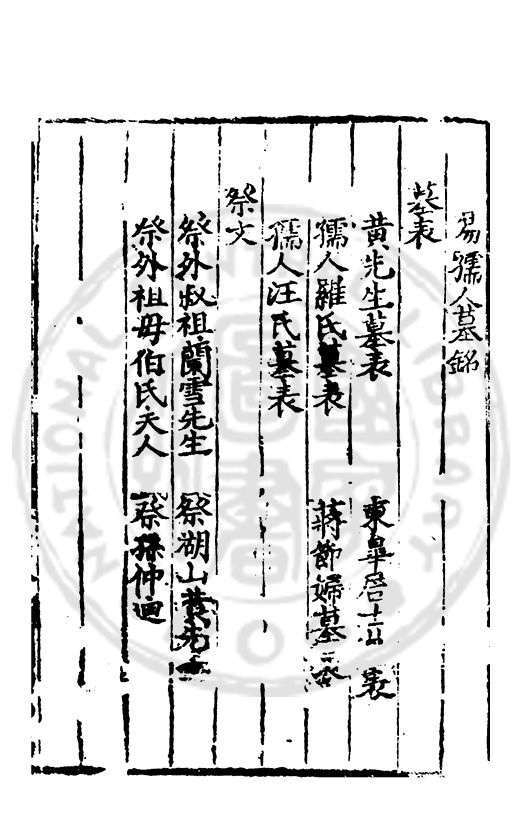 易孺人墓銘
墓表
黃先生墓表 東皐居士 表
孺人羅氏墓表 蔣節婦墓表
孺人汪氏墓表
祭文
祭外叔祖蘭雪先生 祭湖山黄先生
祭外祖母伯氏夫人 祭孫仲迴
NATIONAL LIBRARY